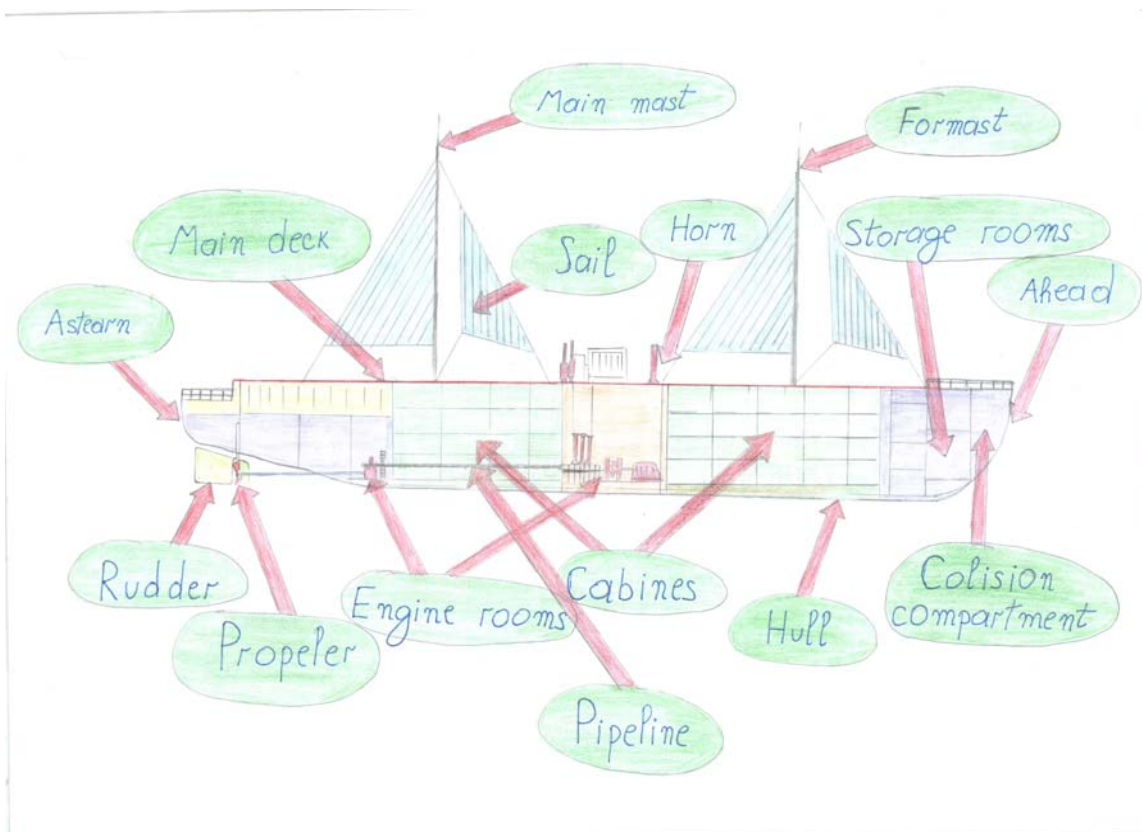 Main mast
Formast
Main deck
Sail
Horn
Storage rooms
Ahead
Astearn
Rudder
Propeler
Engine rooms
Cabines
Hull
Colision
compartment
Pipeline